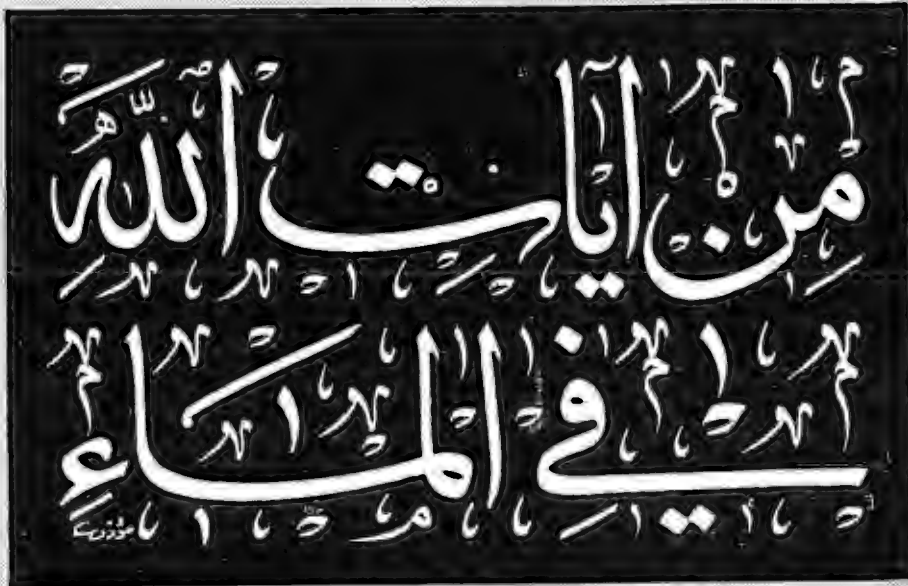 مِن آيَات اللهُ
في المَاءِ